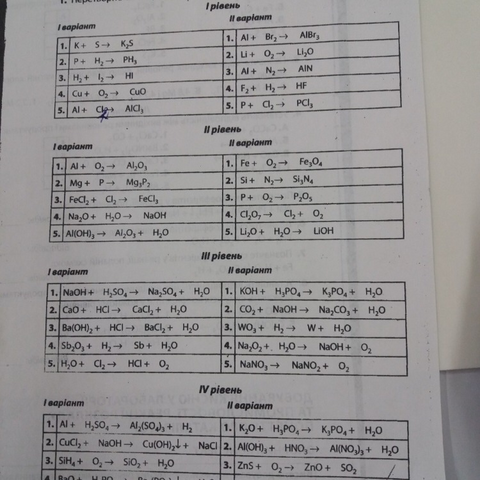 I рівень
I варіант II варіант
1. K + S → K₂S 1. Al + Br₂ → AlBr₃
2. P + H₂ → PH₃ 2. Li + O₂ → Li₂O
3. H₂ + I₂ → HI 3. Al + N₂ → AlN
4. Cu + O₂ → CuO 4. F₂ + H₂ → HF
5. Al + Cl₂ → AlCl₃ 5. P + Cl₂ → PCl₃
II рівень
I варіант II варіант
1. Al + O₂ → Al₂O₃ 1. Fe + O₂ → Fe₃O₄
2. Mg + P → Mg₃P₂ 2. Si + N₂ → Si₃N₄
3. FeCl₂ + Cl₂ → FeCl₃ 3. P + O₂ → P₂O₅
4. Na₂O + H₂O → NaOH 4. Cl₂O₇ → Cl₂ + O₂
5. Al(OH)₃ → Al₂O₃ + H₂O 5. Li₂O + H₂O → LiOH
III рівень
I варіант II варіант
1. NaOH + H₂SO₄ → Na₂SO₄ + H₂O 1. KOH + H₃PO₄ → K₃PO₄ + H₂O
2. CaO + HCl → CaCl₂ + H₂O 2. CO₂ + NaOH → Na₂CO₃ + H₂O
3. Ba(OH)₂ + HCl → BaCl₂ + H₂O 3. WO₃ + H₂ → W + H₂O
4. Sb₂O₃ + H₂ → Sb + H₂O 4. Na₂O₂ + H₂O → NaOH + O₂
5. H₂O + Cl₂ → HCl + O₂ 5. NaNO₃ → NaNO₂ + O₂
IV рівень
I варіант II варіант
1. Al + H₂SO₄ → Al₂(SO₄)₃ + H₂ 1. K₂O + H₃PO₄ → K₃PO₄ + H₂O
2. CuCl₂ + NaOH → Cu(OH)₂↓ + NaCl 2. Al(OH)₃ + HNO₃ → Al(NO₃)₃ + H₂O
3. SiH₄ + O₂ → SiO₂ + H₂O 3. ZnS + O₂ → ZnO + SO₂